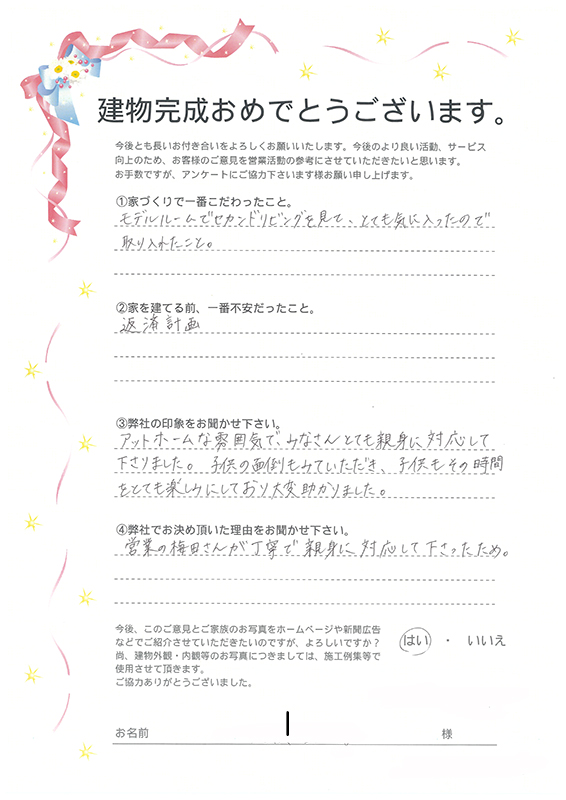 建物完成おめでとうございます。
今後とも長いお付き合いをよろしくお願いいたします。今後のより良い活動、サービス
向上のため、お客様のご意見を営業活動の参考にさせていただきたいと思います。
お手数ですが、アンケートにご協力下さいます様お願い申し上げます。
①家づくりで一番こだわったこと。
モデルルームでセカンドリビングを見て、とても気に入ったので
取り入れたこと。
②家を建てる前、一番不安だったこと。
返済計画
③弊社の印象をお聞かせ下さい。
アットホームな雰囲気で、みなさんとても親身に対応して
下さりました。子供の面倒もみていただき、子供もその時間
をとても楽しみにしており大変助かりました。
④弊社でお決め頂いた理由をお聞かせ下さい。
営業の梅田さんが丁寧で親身に対応して下さったため。
今後、このご意見とご家族のお写真をホームページや新聞広告
などでご紹介させていただきたいのですが、よろしいですか？
はい ・ いいえ
尚、建物外観・内観等のお写真につきましては、施工例集等で
使用させて頂きます。
ご協力ありがとうございました。
お名前 様